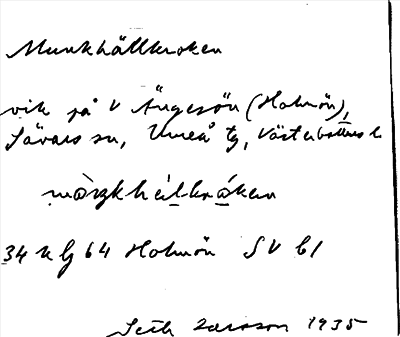 Munkhällkroken
vik på V Ängesön (Holmön),
Sävars sn, Umeå tg, Västerbottens l
34 k lj 64 Holmön SV bl
Seth Larsson 1935